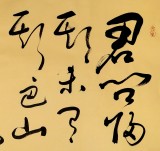 君問歸
期未有
期巴山